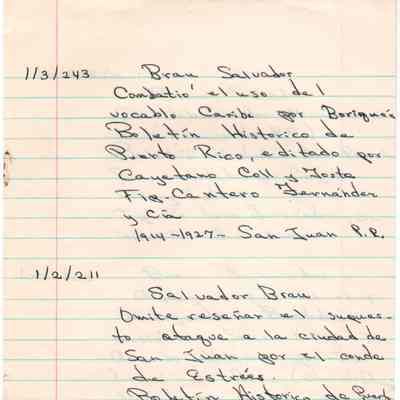 1/3/243 Brau Salvador
Combatió el uso del
vocablo Caribe por Boriqueń
Boletín Historico de
Puerto Rico, editado por
Cayetano Coll y Toste
Fig. Cantero Fernández
y Cía
1914-1927- San Juan P.R.
1/2/211
Salvador Brau
Omite reseñar el supues-
to ataque a la ciudad de
San Juan por el conde
de Estrées.
Boletín Historico de Puerto